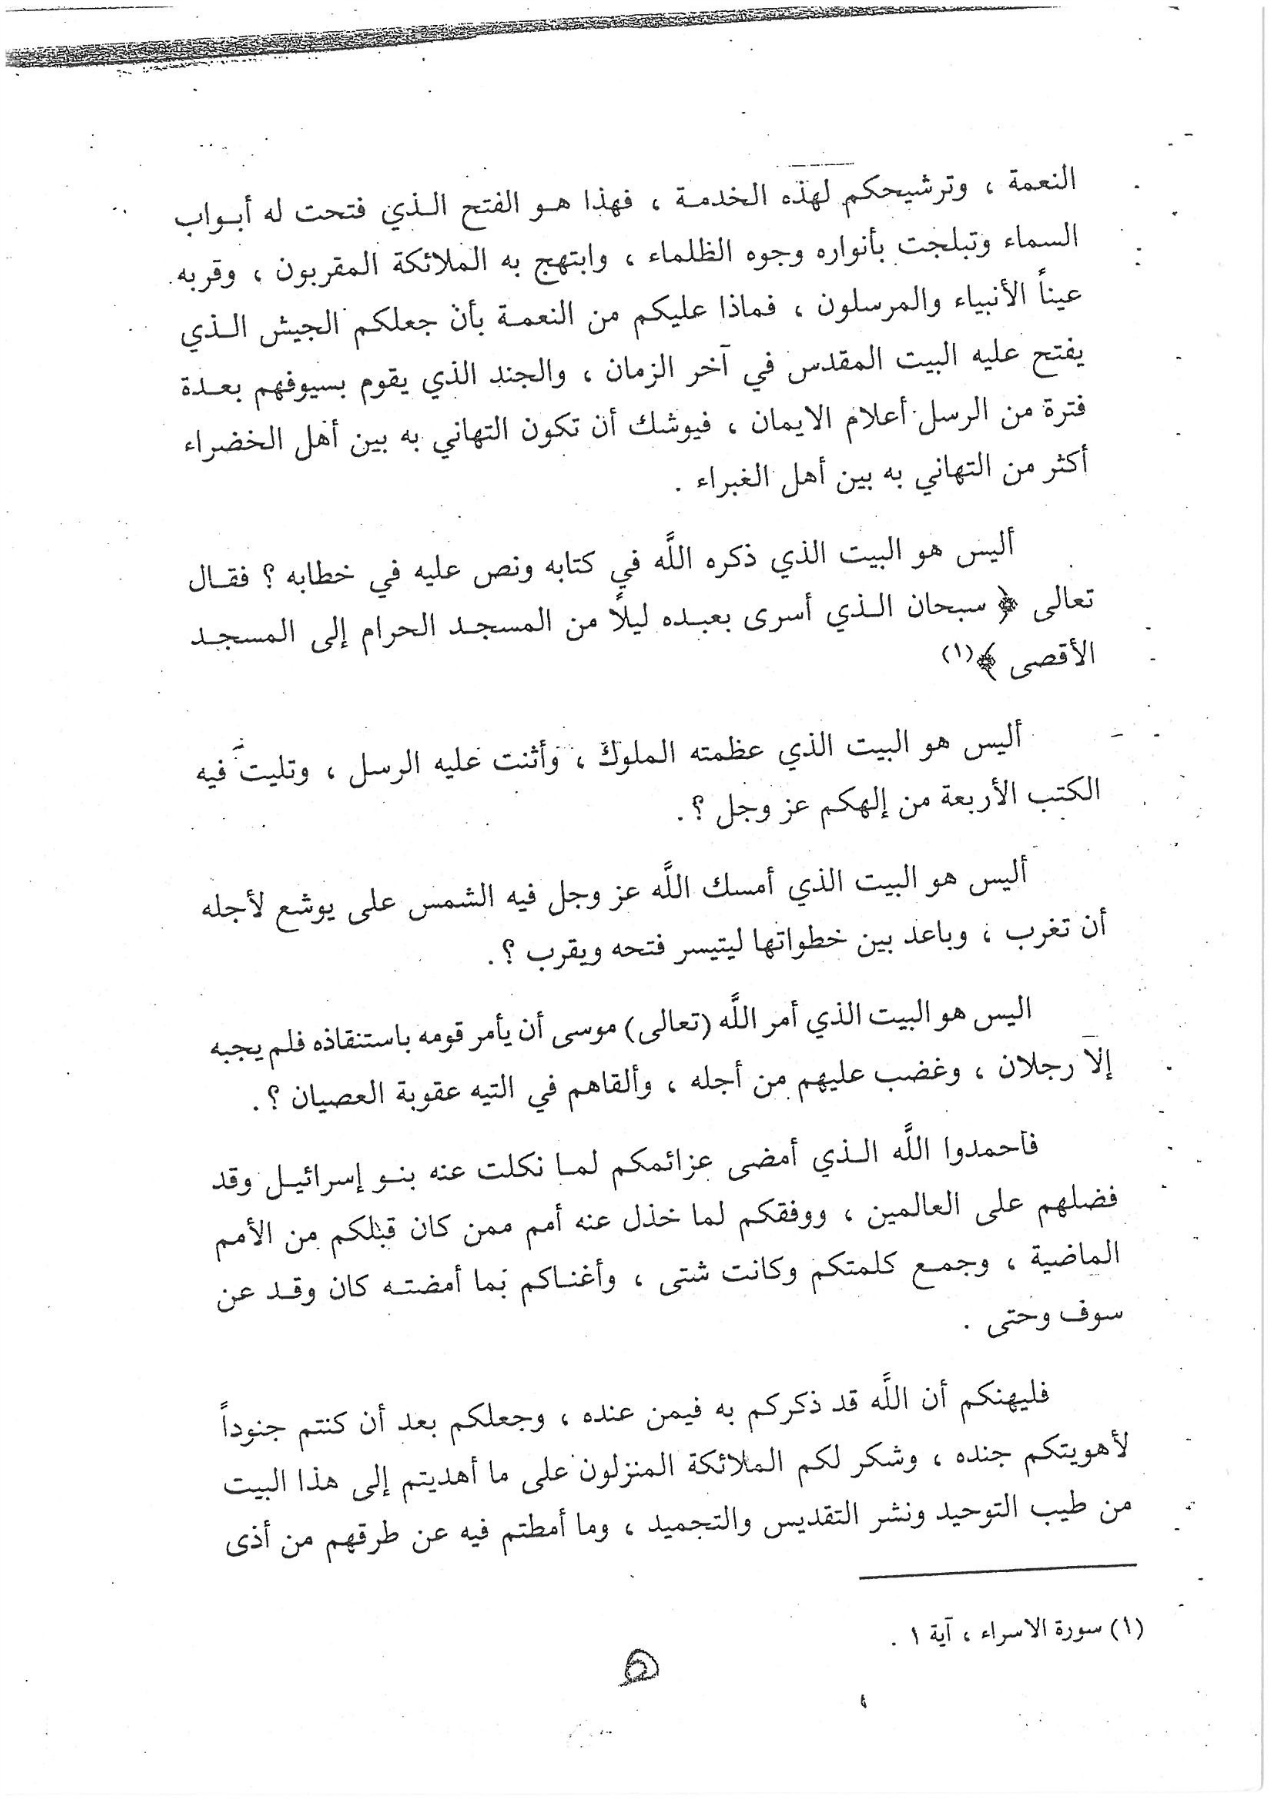 النعمة ، وترشيحكم لهذه الخدمة ، فهذا هو الفتح الذي فتحت له أبواب
السماء وتبلجت بأنواره وجوه الظلماء ، وابتهج به الملائكة المقربون ، وقربه
عيناً الأنبياء والمرسلون ، فماذا عليكم من النعمة بأن جعلكم الجيش الذي
يفتح عليه البيت المقدس في آخر الزمان ، والجند الذي يقوم بسيوفهم بعدة
فترة من الرسل أعلام الايمان ، فيوشك أن تكون التهاني به بين أهل الخضراء
أكثر من التهاني به بين أهل الغبراء .
أليس هو البيت الذي ذكره اللَّه في كتابه ونص عليه في خطابه ؟ فقال
تعالى ﴿ سبحان الذي أسرى بعبده ليلًا من المسجد الحرام إلى المسجد
الأقصى ﴾(١)
أليس هو البيت الذي عظمته الملوك ، وأثنت عليه الرسل ، وتليت فيه
الكتب الأربعة من إلهكم عز وجل ؟ .
أليس هو البيت الذي أمسك اللَّه عز وجل فيه الشمس على يوشع لأجله
أن تغرب ، وباعد بين خطواتها ليتيسر فتحه ويقرب ؟ .
اليس هو البيت الذي أمر اللَّه (تعالى) موسى أن يأمر قومه باستنقاذه فلم يجبه
إلا رجلان ، وغضب عليهم من أجله ، وألقاهم في التيه عقوبة العصيان ؟ .
فأحمدوا اللَّه الذي أمضى عزائمكم لما نكلت عنه بنو إسرائيل وقد
فضلهم على العالمين ، ووفقكم لما خذل عنه أمم ممن كان قبلكم من الأمم
الماضية ، وجمع كلمتكم وكانت شتى ، وأغناكم بما أمضته كان وقد عن
سوف وحتى .
فليهنكم أن اللَّه قد ذكركم به فيمن عنده ، وجعلكم بعد أن كنتم جنوداً
لأهويتكم جنده ، وشكر لكم الملائكة المنزلون على ما أهديتم إلى هذا البيت
من طيب التوحيد ونشر التقديس والتجميد ، وما أمطتم فيه عن طرقهم من أذى
(١) سورة الاسراء ، آية ١ .